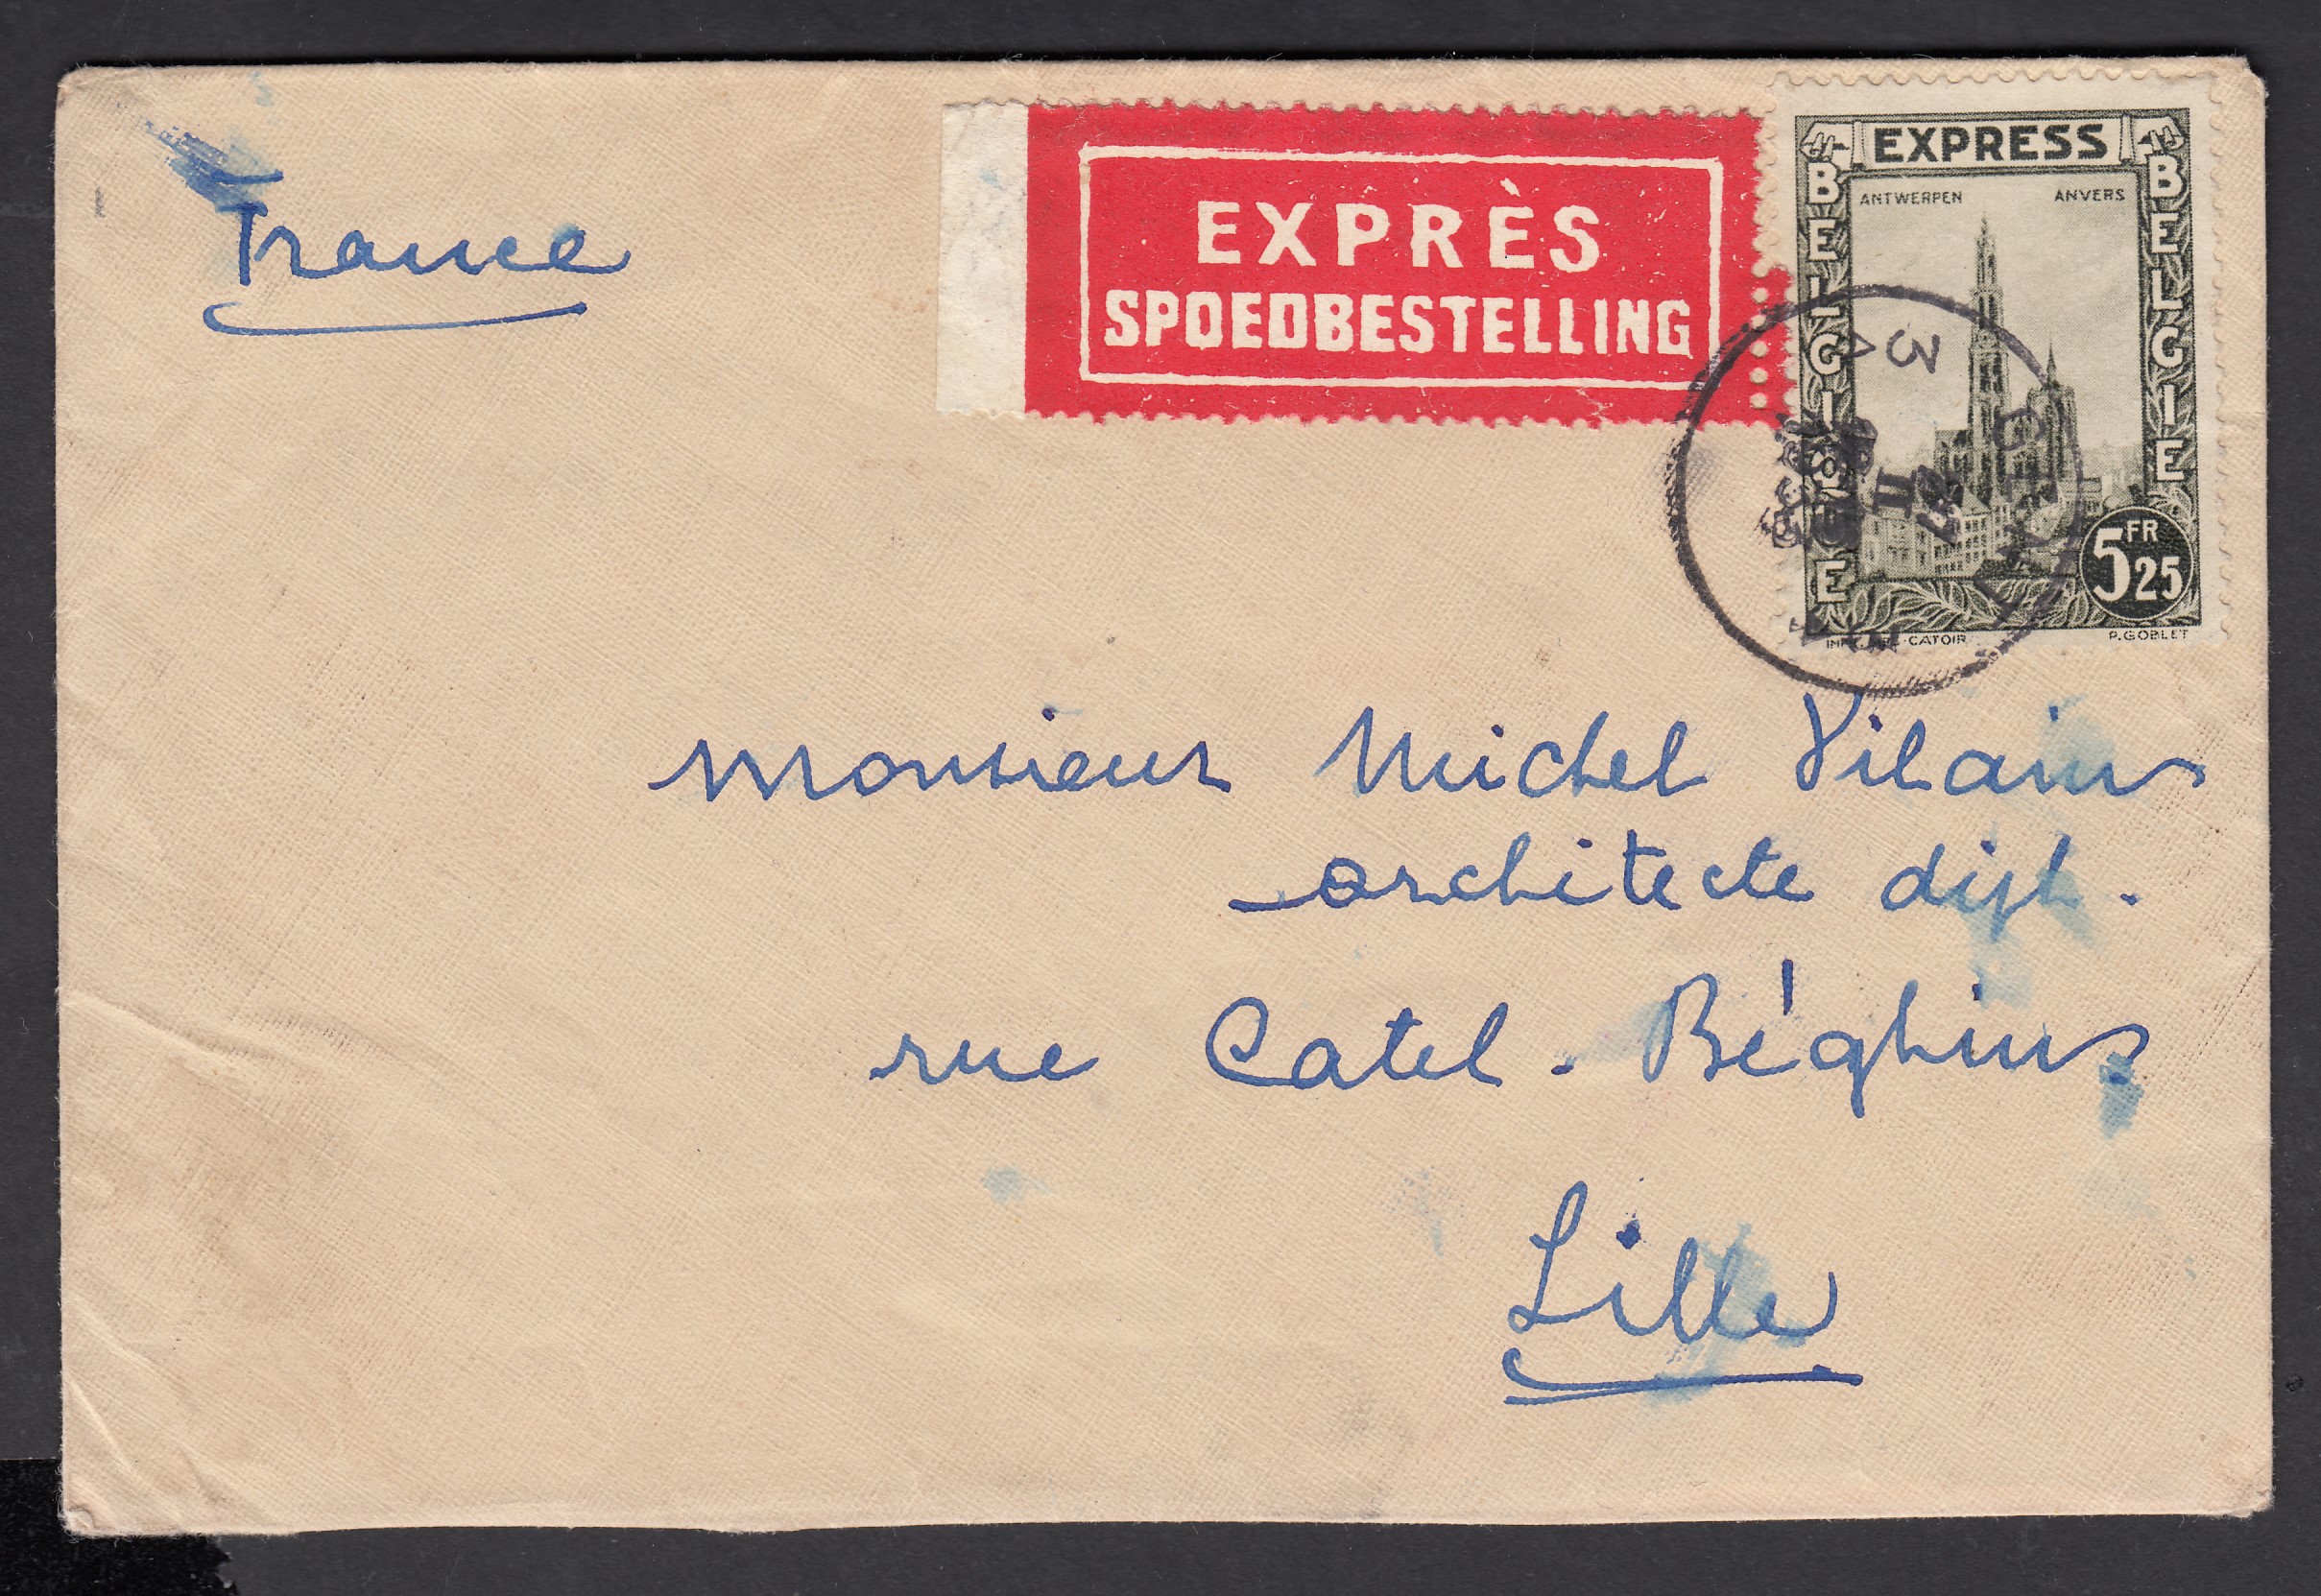 France
EXPRÈS
SPOEDBESTELLING
EXPRESS
ANTWERPEN ANVERS
BELGIQUE
BELGIE
5 FR 25
CATOIR
P. GOBLET
Monsieur Michel Vilain
architecte dipl.
rue Catel-Béghin
Lille